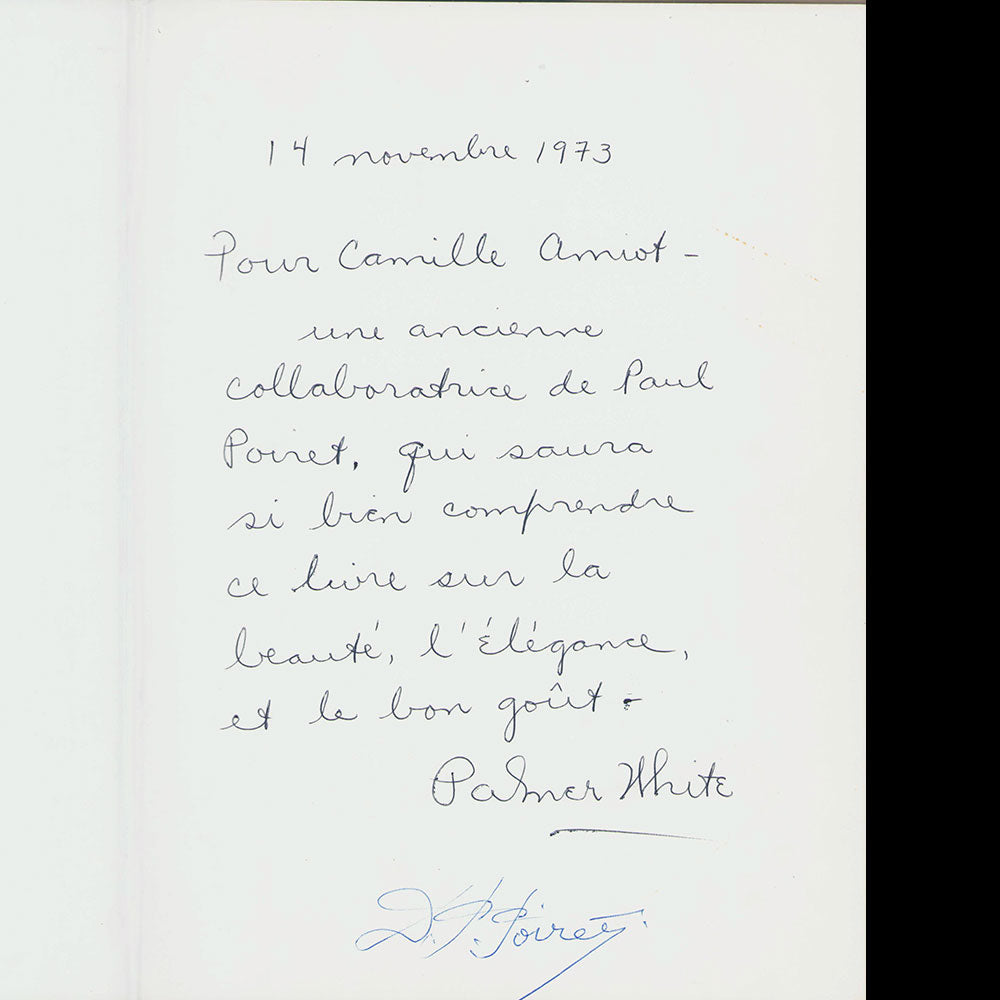 14 novembre 1973
Pour Camille Amiot -
une ancienne
collaboratrice de Paul
Poiret, qui saura
si bien comprendre
ce livre sur la
beauté, l'élégance,
et le bon goût.
Palmer White
D. P. Poiret